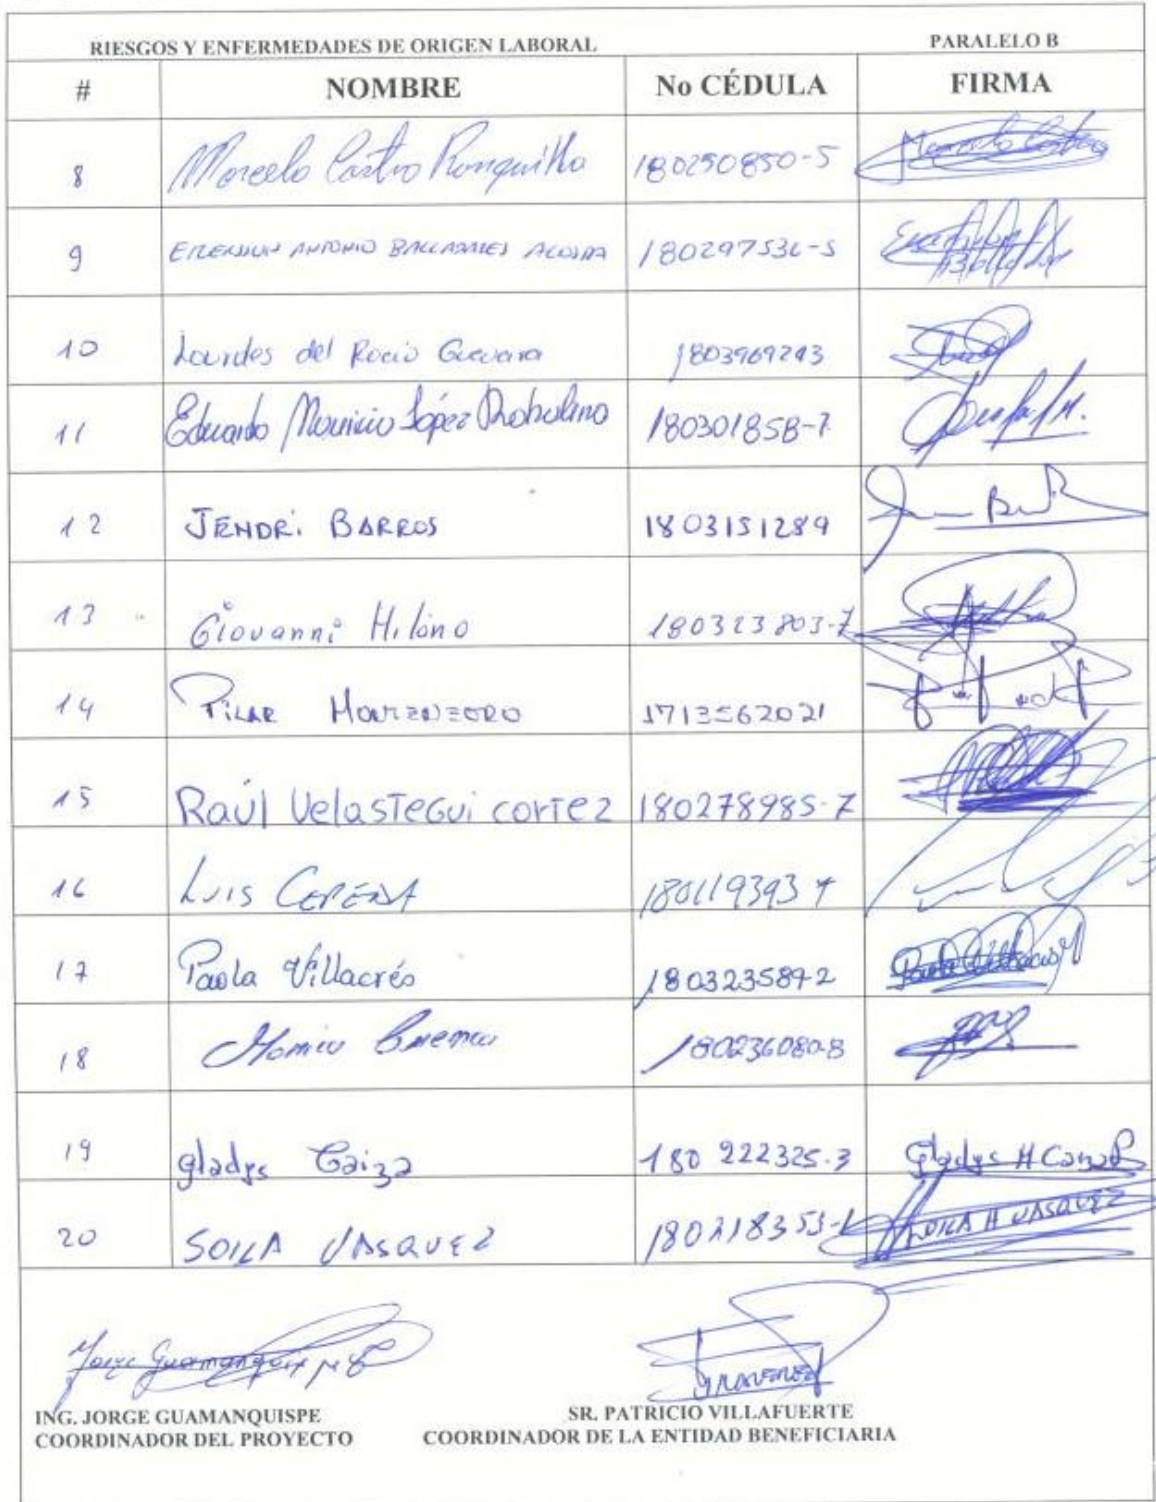 RIESGOS Y ENFERMEDADES DE ORIGEN LABORAL PARALELO B
# NOMBRE No CÉDULA FIRMA
8 Marcelo Castro Ronquillo 180250850-5 Marcelo Castro
9 ANTONIO BALLADARES ACOSTA 180297536-5
10 Lourdes del Rocio Guevara 1803969243
11 Eduardo Mauricio López 180301858-7
12 JENDRi BARROS 1803151289
13 Giovanni 180323803-7
14 PILAR MONTENEGRO 1713562021
15 Raúl Velastegui cortez 180278985-7
16 LUIS CEPEDA 180119393 7
17 Paola Villacrés 1803235892 Paola Villacres
18 180236080-8
19 gladys Caiza 180 222325-3 Gladys H
20 SOILA VASQUEZ 180218353-1 SOILA H VASQUEZ
Jorge Guamanquispe
ING. JORGE GUAMANQUISPE SR. PATRICIO VILLAFUERTE
COORDINADOR DEL PROYECTO COORDINADOR DE LA ENTIDAD BENEFICIARIA